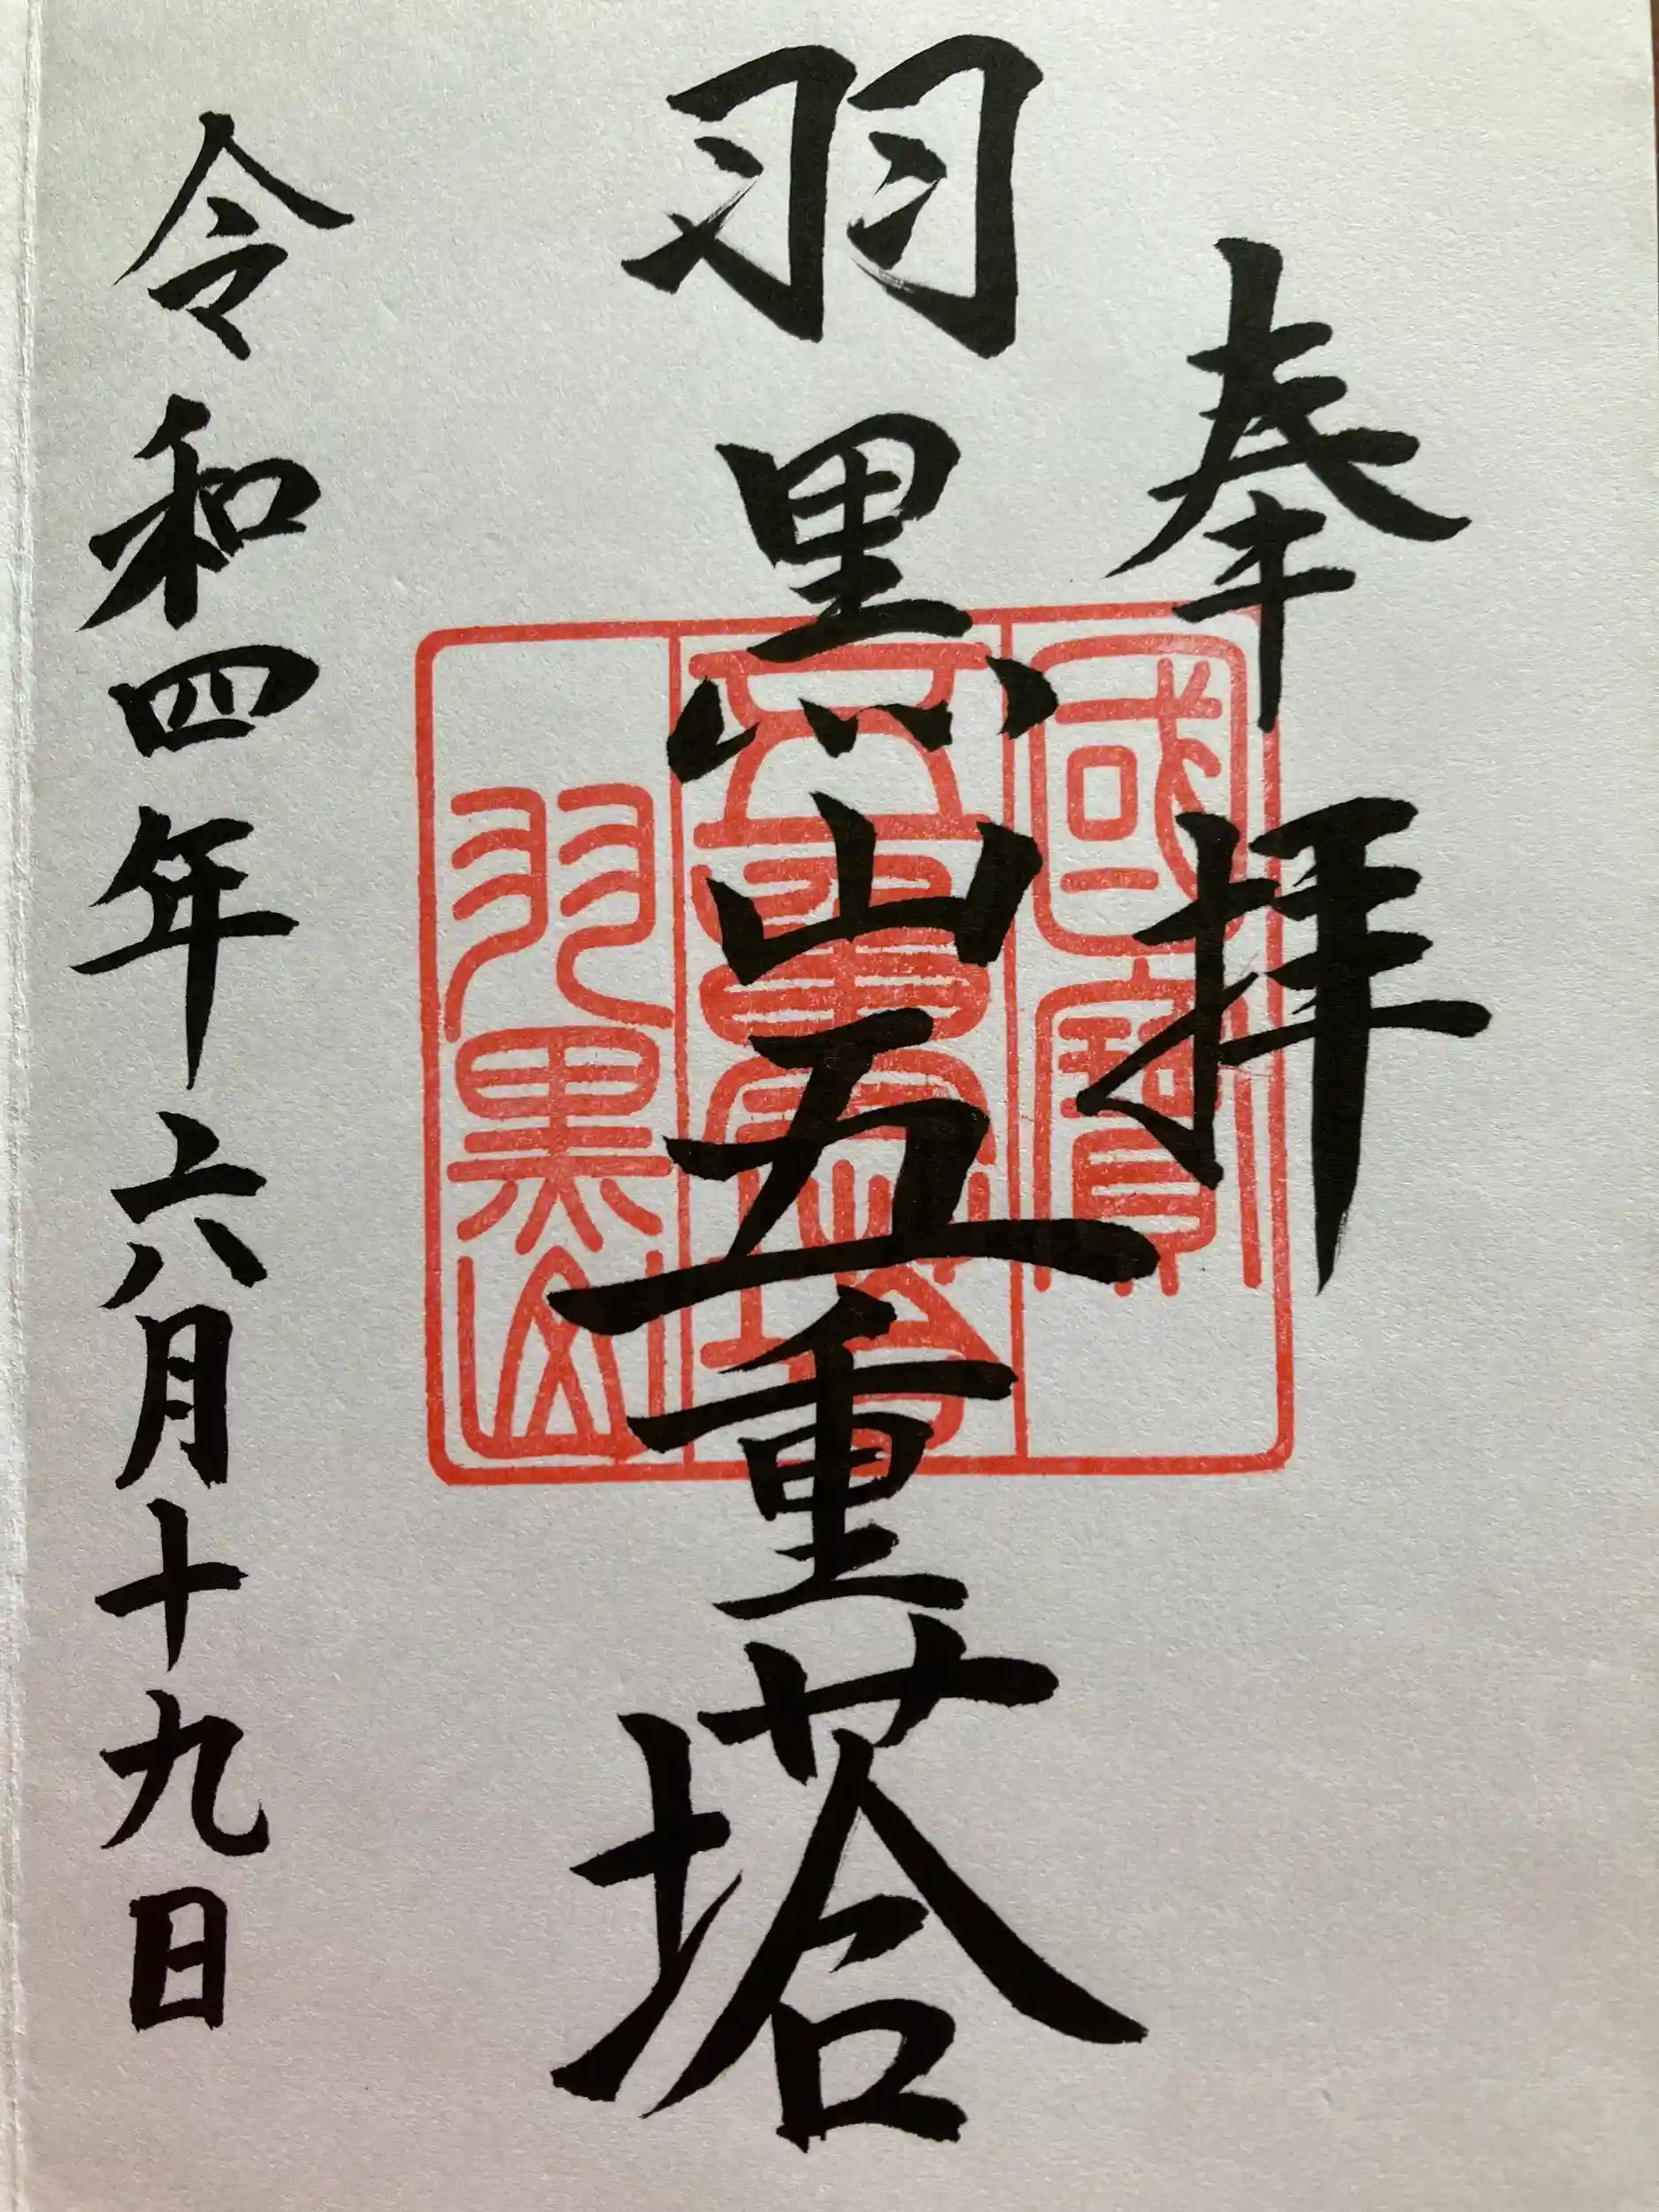 奉拝
羽黒山五重塔
令和四年六月十九日
國寳
五重塔
羽黒山